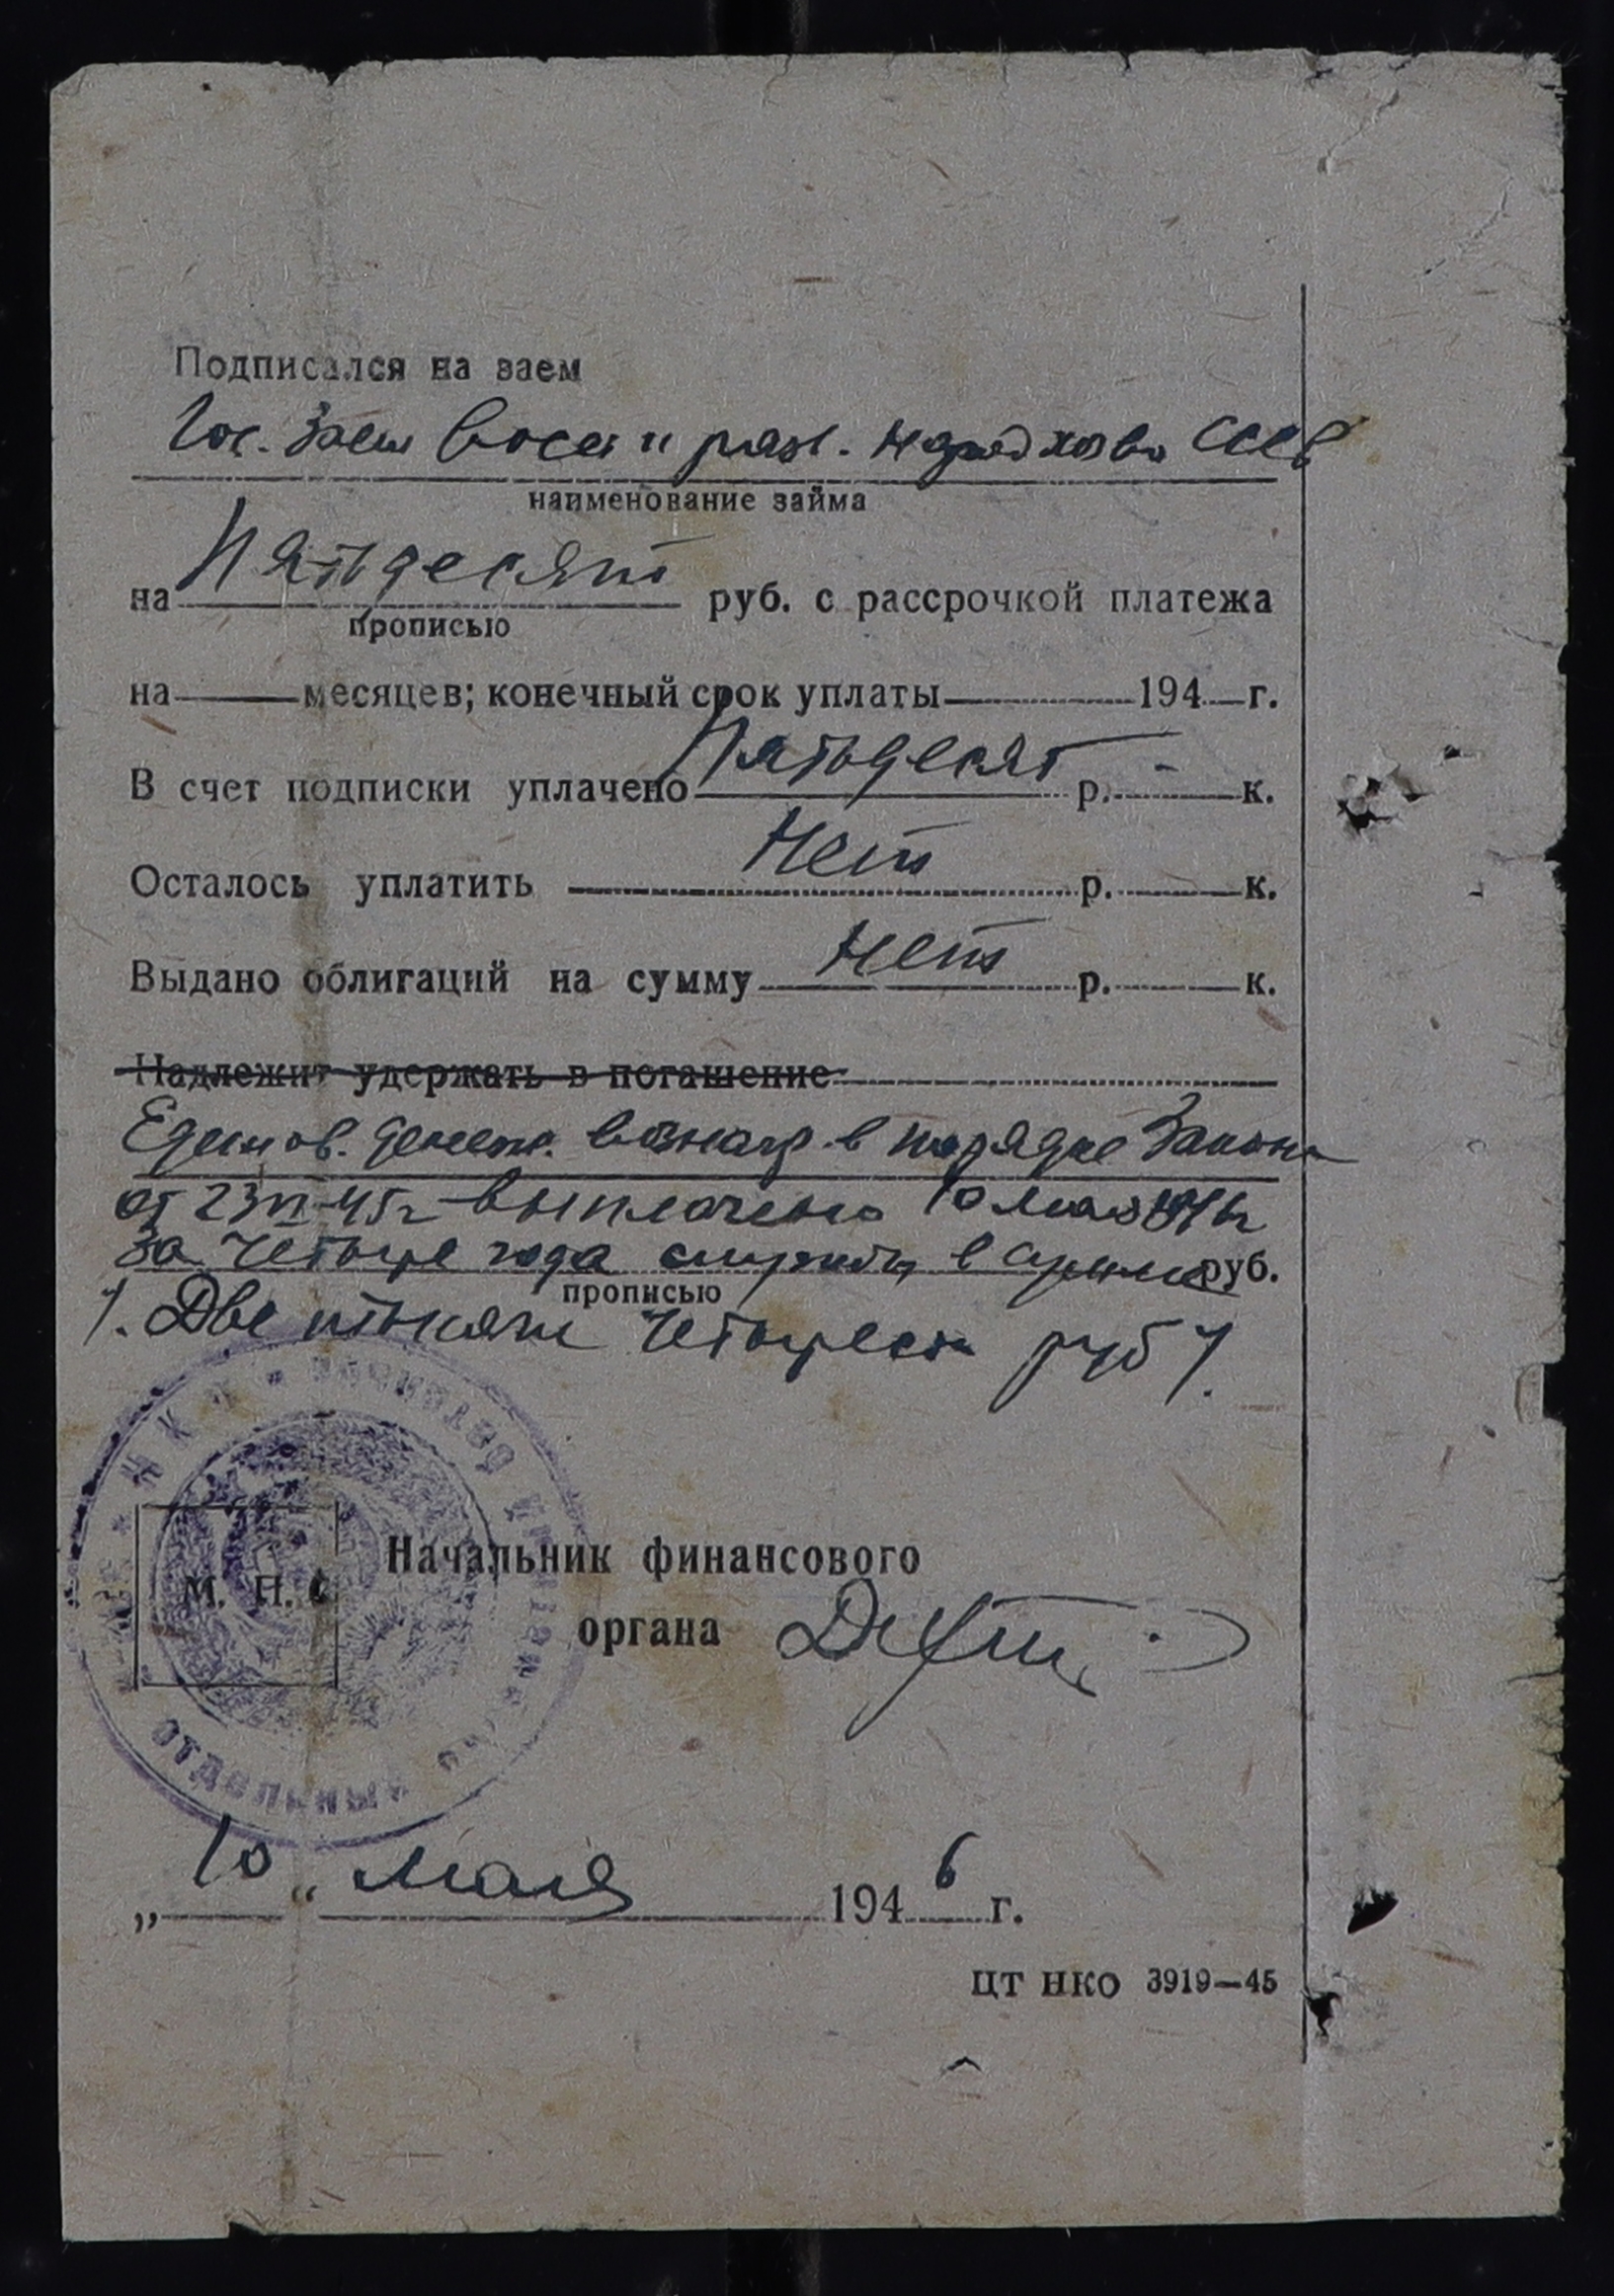 Подписался на заем
Гос. Заем восст и разв. народ хоз-ва СССР
наименование займа
на Пятьдесят руб. с рассрочкой платежа
прописью
на месяцев; конечный срок уплаты 194 г.
В счет подписки уплачено Пятьдесят р. - к.
Осталось уплатить Нет р. к.
Выдано облигаций на сумму Нет р. к.
Надлежит удержать в погашение
Единов. денеж. вознагр. в порядке Закона
от 23 VI-45г выплачено 10 мая 1946г
за Четыре года службы в армии руб.
прописью
/. Две тысячи Четыреста руб /.
М. П.
Начальник финансового
органа
ОТДЕЛЬНЫЙ
„10“ мая 1946 г.
ЦТ НКО 3919—45